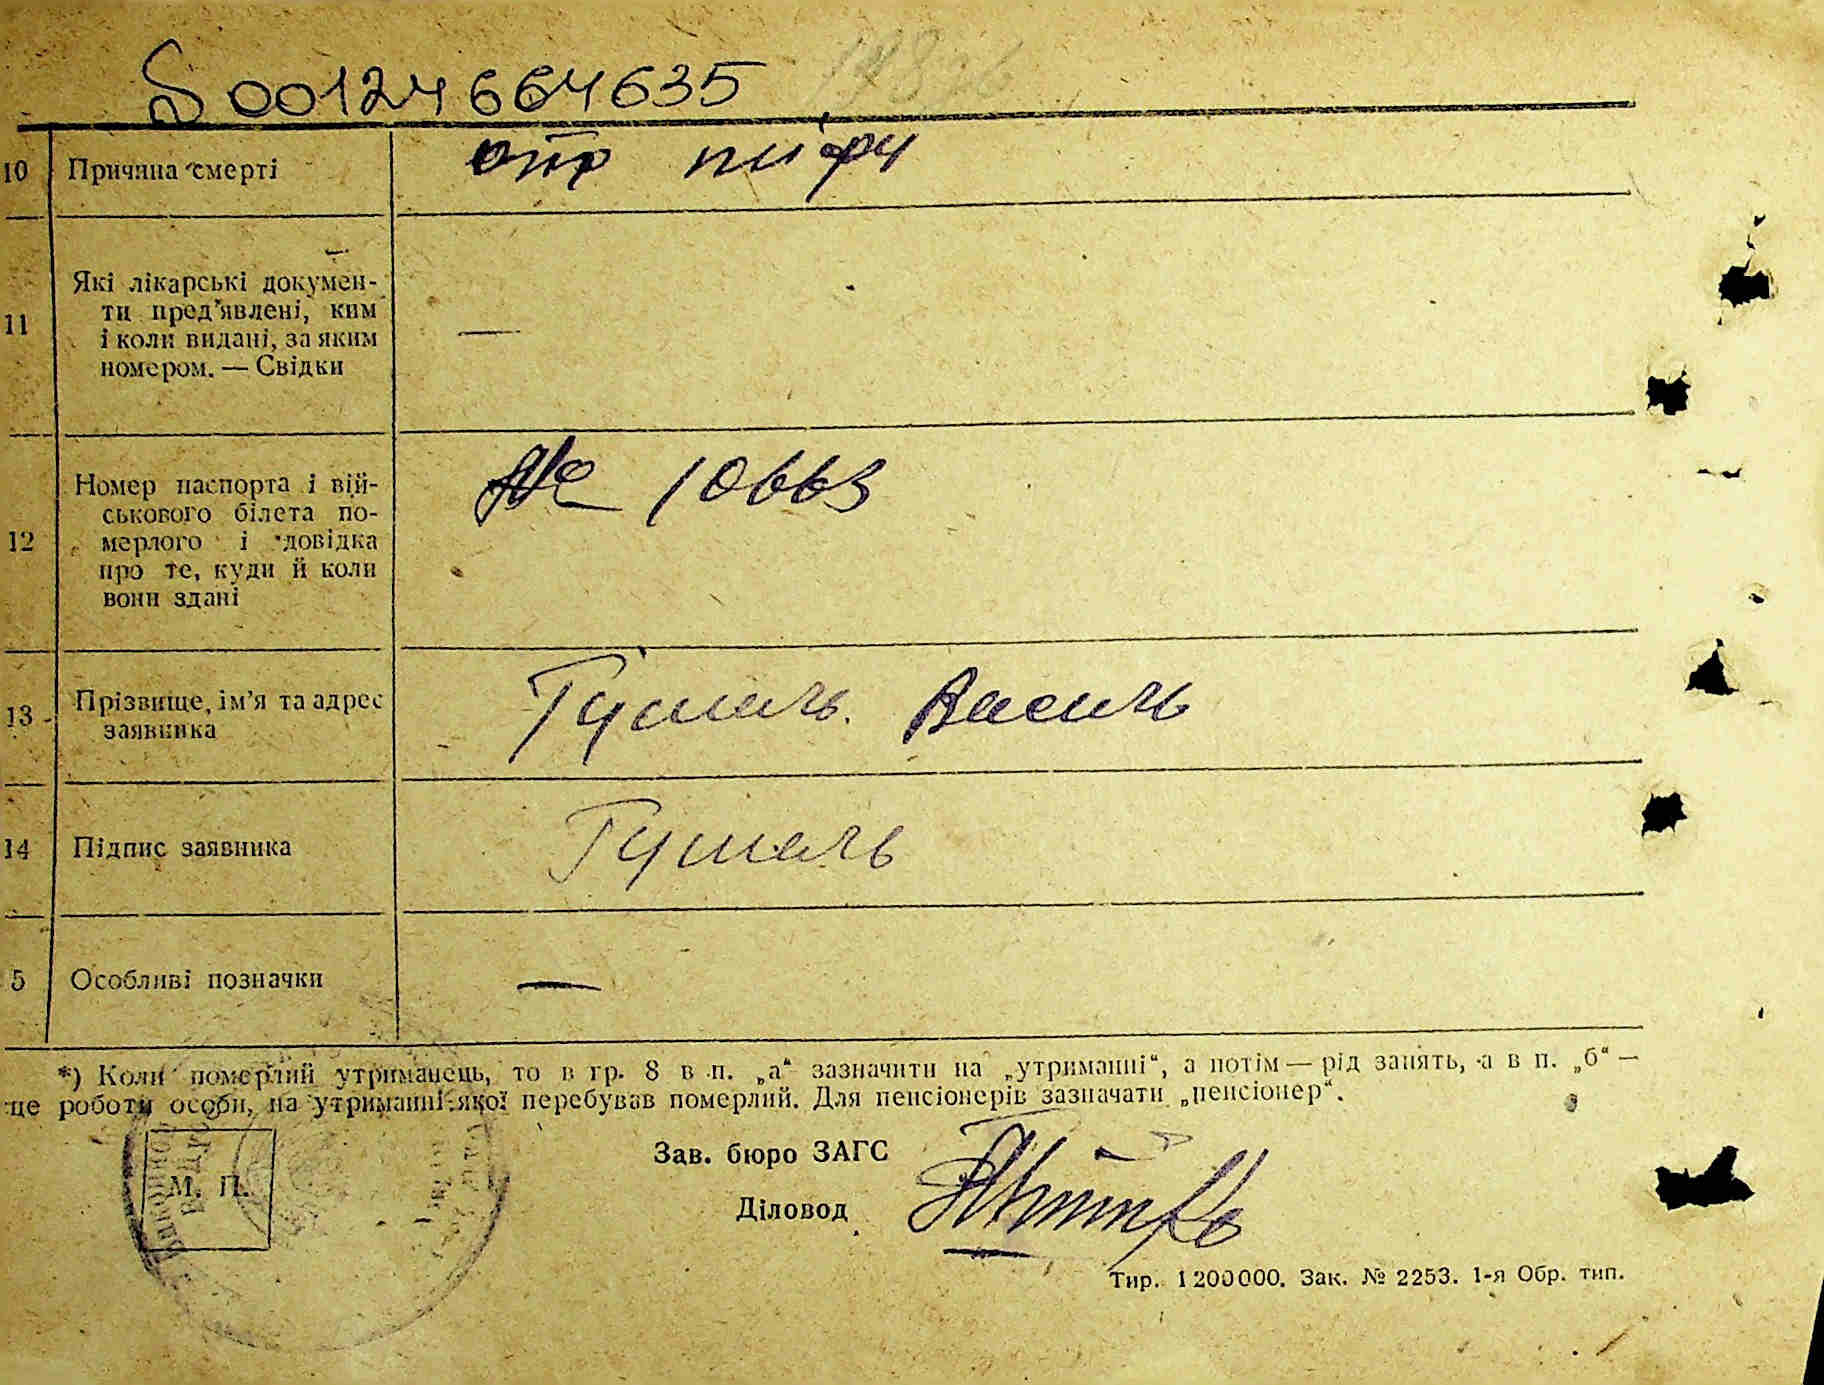 00124664635
10 Причина смерті
11 Які лікарські докумен-
ти пред'явлені, ким
і коли видані, за яким
номером. — Свідки
—
12 Номер паспорта і вій-
ськового білета по-
мерлого і довідка
про те, куди й коли
вони здані
10663
13 Прізвище, ім'я та адрес
заявника
Гушель Василь
14 Підпис заявника
Гушель
5 Особливі позначки
—
*) Коли померлий утриманець, то в гр. 8 в п. „а“ зазначити на „утриманні“, а потім — рід занять, а в п. „б“ —
це роботи особи, на утриманні якої перебував померлий. Для пенсіонерів зазначати „пенсіонер“.
Зав. бюро ЗАГС
М. П.
Діловод
Тир. 1200000. Зак. № 2253. 1-я Обр. тип.